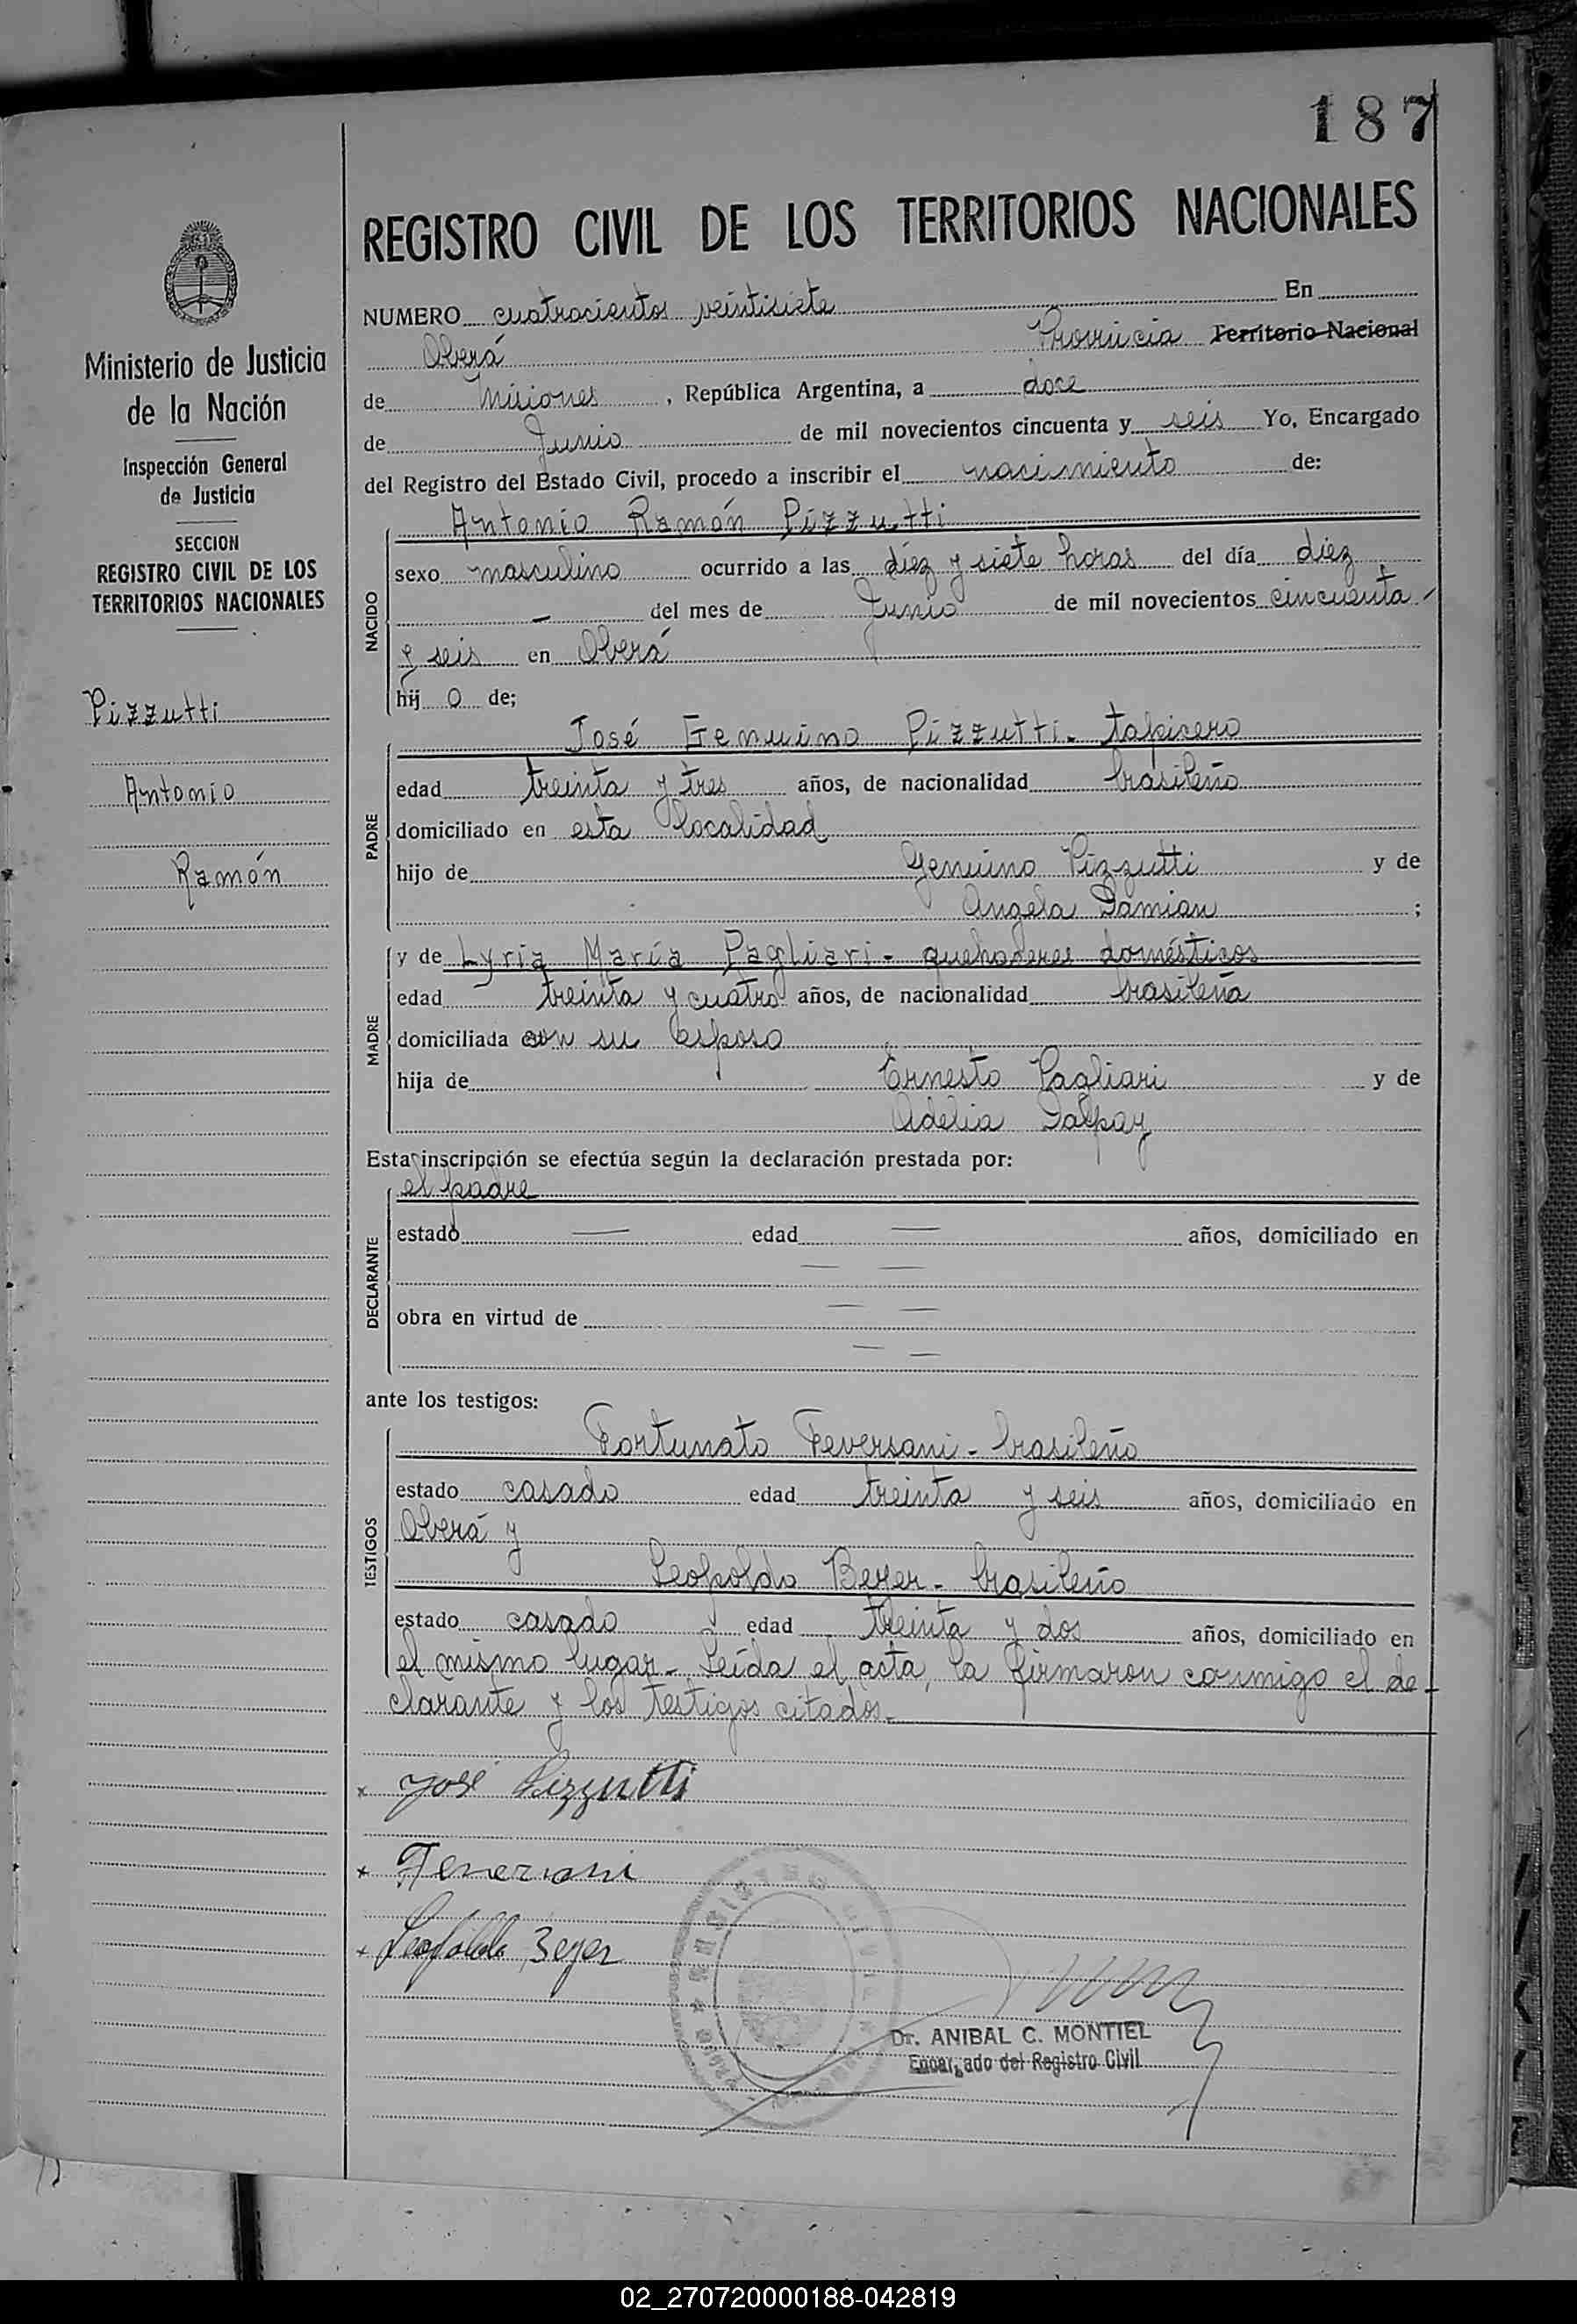 187
REGISTRO CIVIL DE LOS TERRITORIOS NACIONALES
Ministerio de Justicia
de la Nación
Inspección General
de Justicia
SECCION
REGISTRO CIVIL DE LOS
TERRITORIOS NACIONALES
Pizzutti
Antonio
Ramón
NUMERO cuatrocientos veintisiete En
Oberá Provincia Territorio Nacional
de Misiones, República Argentina, a doce
de Junio de mil novecientos cincuenta y seis Yo, Encargado
del Registro del Estado Civil, procedo a inscribir el nacimiento de:
NACIDO
Antonio Ramón Pizzutti
sexo masculino ocurrido a las diez y siete horas del día diez
— del mes de Junio de mil novecientos cincuenta
y seis en Oberá
hij o de;
PADRE
José Genuino Pizzutti - tapicero
edad treinta y tres años, de nacionalidad brasileño
domiciliado en esta localidad
hijo de Genuino Pizzutti y de
Angela Damian ;
MADRE
y de Lyria María Pagliari - quehaceres domésticos
edad treinta y cuatro años, de nacionalidad brasileña
domiciliada con su esposo
hija de Ernesto Pagliari y de
Adelia Dalpay
Esta inscripción se efectúa según la declaración prestada por:
DECLARANTE
el padre
estado — edad — años, domiciliado en
— —
obra en virtud de — —
— —
ante los testigos:
TESTIGOS
Fortunato Feversani - brasileño
estado casado edad treinta y seis años, domiciliado en
Oberá y
Leopoldo Beyer - brasileño
estado casado edad treinta y dos años, domiciliado en
el mismo lugar - Leída el acta, la firmaron conmigo el de-
clarante y los testigos citados.-
x José Pizzutti
x
x Leopoldo Beyer
Dr. ANIBAL C. MONTIEL
Encargado del Registro Civil
02_270720000188-042819